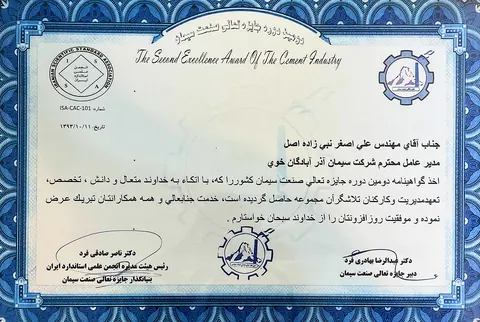 دومین دوره جایزه تعالی صنعت سیمان
The Second Excellence Award Of The Cement Industry
IRANIAN SCIENTIFIC STANDARD ASSOCIATION
انجمن علمی استاندارد ایران
شماره: ISA-CAC-101
تاریخ: ۱۳۹۳/۱۰/۱۱
جناب آقای مهندس علی اصغر نبی زاده اصل
مدیر عامل محترم شرکت سیمان آذر آبادگان خوی
اخذ گواهینامه دومین دوره جایزه تعالی صنعت سیمان کشوررا که، با اتکاء به خداوند متعال و دانش ، تخصص،
تعهدمدیریت وکارکنان تلاشگرآن مجموعه حاصل گردیده است، خدمت جنابعالی و همه همکارانتان تبریک عرض
نموده و موفقیت روزافزونتان را از خداوند سبحان خواستارم .
دکتر عبدالرضا بهادری فرد
دبیر جایزه تعالی صنعت سیمان
دکتر ناصر صادقی فرد
رئیس هیئت مدیره انجمن علمی استاندارد ایران
بنیانگذار جایزه تعالی صنعت سیمان